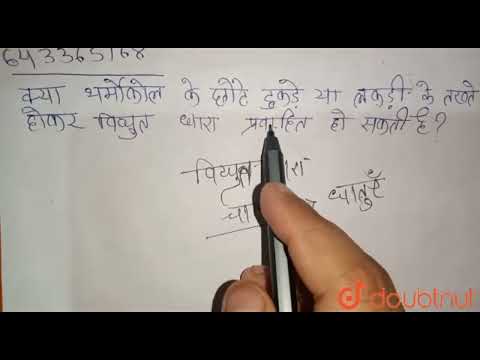 643365168
क्या थर्मोकोल के छोटे टुकड़े या लकड़ी के तख्ते
होकर विद्युत धारा प्रवाहित हो सकती है?
विद्युत धारा
धातुएँ
doubtnut